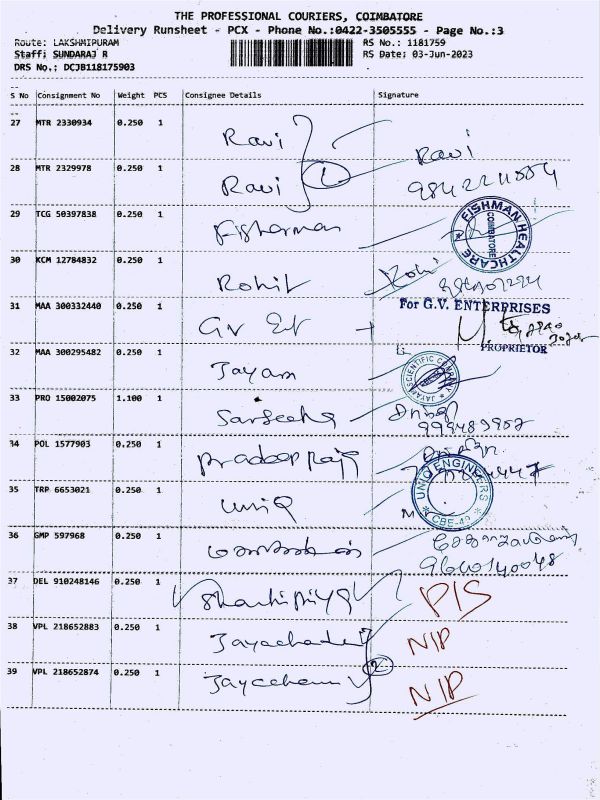 THE PROFESSIONAL COURIERS, COIMBATORE
Delivery Runsheet - PCX - Phone No.:0422-3505555 - Page No.:3
Route: LAKSHMIPURAM
RS No.: 1181759
Staff: SUNDARAJ R
RS Date: 03-Jun-2023
DRS No.: DCJB118175903
S No Consignment No Weight PCS Consignee Details Signature
27 MTR 2330934 0.250 1 Ravi
28 MTR 2329978 0.250 1 Ravi 1 Ravi
29 TCG 50397838 0.250 1 Fisherman
FISHMAN HEALTHCARE
COIMBATORE
30 KCM 12784832 0.250 1 Rohit Rohi
31 MAA 300332440 0.250 1 GV Et
For G.V. ENTERPRISES
PROPRIETOR
32 MAA 300295482 0.250 1 Jayam
JAYAM SCIENTIFIC COMPANY
33 PRO 15002075 1.100 1
34 POL 1577903 0.250 1 Pradeep Raja
35 TRP 6653021 0.250 1 UNIQ
UNIQ ENGINEERS
CBE-42
36 GMP 597968 0.250 1
37 DEL 910248146 0.250 1 Shanthipriya PIS
38 VPL 218652883 0.250 1 NIP
39 VPL 218652874 0.250 1 2 NIP